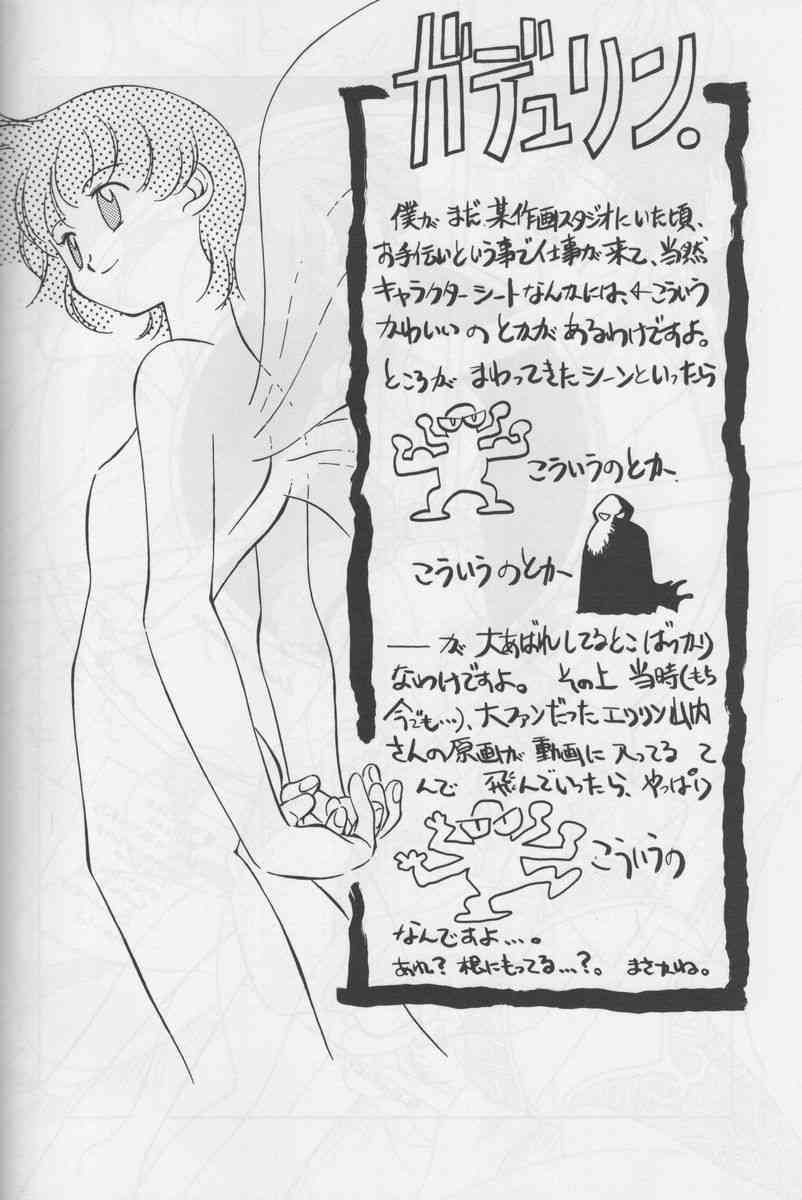 ガデュリン。
僕がまだ某作画スタジオにいた頃、
お手伝いという事で仕事が来て、当然
キャラクターシートなんかには、←こういう
かわいいのとかがあるわけですよ。
ところがまわってきたシーンといったら
こういうのとか
こういうのとか
――が大あばれしてるとこばっかり
なわけですよ。その上当時(もち
今でも…)、大ファンだったエツリン山内
さんの原画が動画に入ってるて
んで飛んでいったら、やっぱり
こういうの
なんですよ…。
あれ?根にもってる…?。まさかね。